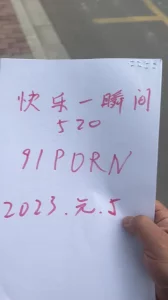 快乐一瞬间
520
91PORN
2023.元.5